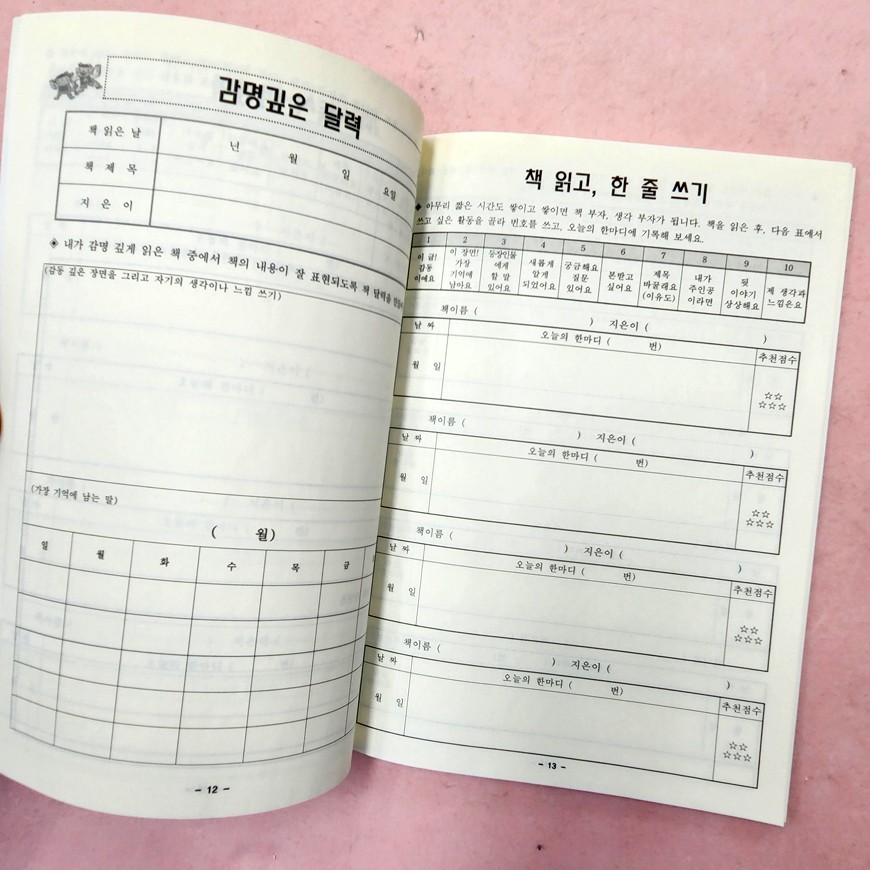 감명깊은 달력
책 읽은 날
년 월 일 요일
책 제 목
지 은 이
◈ 내가 감명 깊게 읽은 책 중에서 책의 내용이 잘 표현되도록 책 달력을
(감동 깊은 장면을 그리고 자기의 생각이나 느낌 쓰기)
(가장 기억에 남는 말)
( 월)
일 월 화 수 목 금
- 12 -
책 읽고, 한 줄 쓰기
◈ 아무리 짧은 시간도 쌓이고 쌓이면 책 부자, 생각 부자가 됩니다. 책을 읽은 후, 다음 표에서
쓰고 싶은 활동을 골라 번호를 쓰고, 오늘의 한마디에 기록해 보세요.
1 2 3 4 5 6 7 8 9 10
이 글!
감동
이에요
이 장면!
가장
기억에
남아요
등장인물
에게
할 말
있어요
새롭게
알게
되었어요
궁금해요
질문
있어요
본받고
싶어요
제목
바꿀래요
(이유도)
내가
주인공
이라면
뒷
이야기
상상해요
제 생각과
느낌은요
책이름 ( ) 지은이 ( )
날 짜 오늘의 한마디 ( 번) 추천점수
월 일
☆☆
☆☆☆
책이름 ( ) 지은이 ( )
날 짜 오늘의 한마디 ( 번) 추천점수
월 일
☆☆
☆☆☆
책이름 ( ) 지은이 ( )
날 짜 오늘의 한마디 ( 번) 추천점수
월 일
☆☆
☆☆☆
책이름 ( ) 지은이 ( )
날 짜 오늘의 한마디 ( 번) 추천점수
월 일
☆☆
☆☆☆
- 13 -